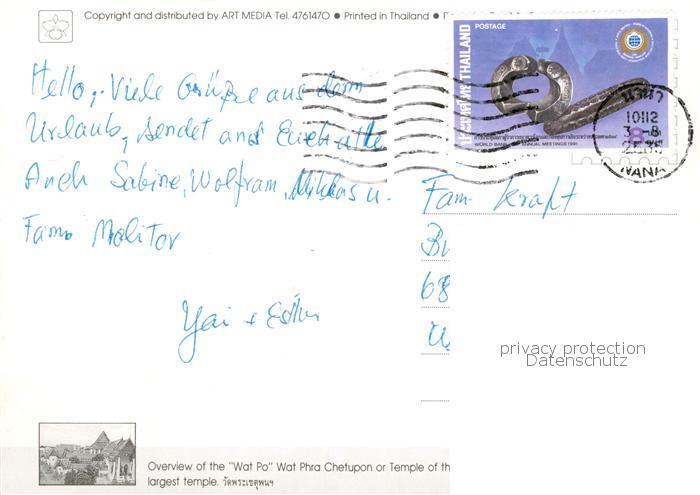 Copyright and distributed by ART MEDIA Tel. 4761470 ● Printed in Thailand ●
POSTAGE
ประเทศไทย THAILAND
WORLD BANK ANNUAL MEETINGS 1991
8
นานา
10112
NANA
Hello, Viele Grüße aus dem
Urlaub, sendet and Euch alle
Auch Sabine, Wolfram, Niklas u.
Fam. Molitor
Yai + Esther
Fam. Kraft
68
privacy protection
Datenschutz
Overview of the "Wat Po" Wat Phra Chetupon or Temple of th
largest temple. วัดพระเชตุพนฯ